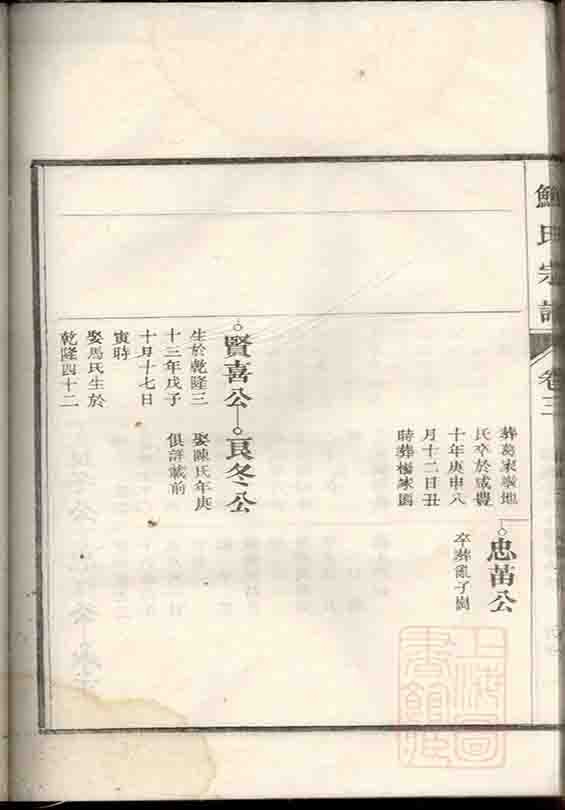 鮑氏宗譜
卷三
葬葛家墩地
氏卒於咸豐
十年庚申八
月十二日丑
時葬楊家園
忠苗公
卒葬亂子崗
賢喜公
生於乾隆三
十三年戊子
十月十七日
寅時
娶馬氏生於
乾隆四十二
良冬公
娶陳氏年庚
俱詳載前
上海圖書館藏